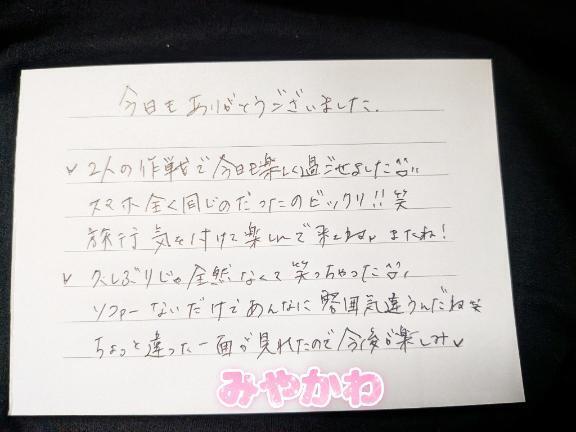 今日もありがとうございました.
✓2人の作戦で今日も楽しく過ごせました^^,,
スマホ全く同じのだったのビックリ!!笑
旅行気を付けて楽しんで来てね,,またね!
✓久しぶりじゃ全然なくて笑っちゃった^^,,
ソファーないだけであんなに雰囲気違うんだね笑
ちょっと違った一面が見れたので今後が楽しみ✓
みやかわ